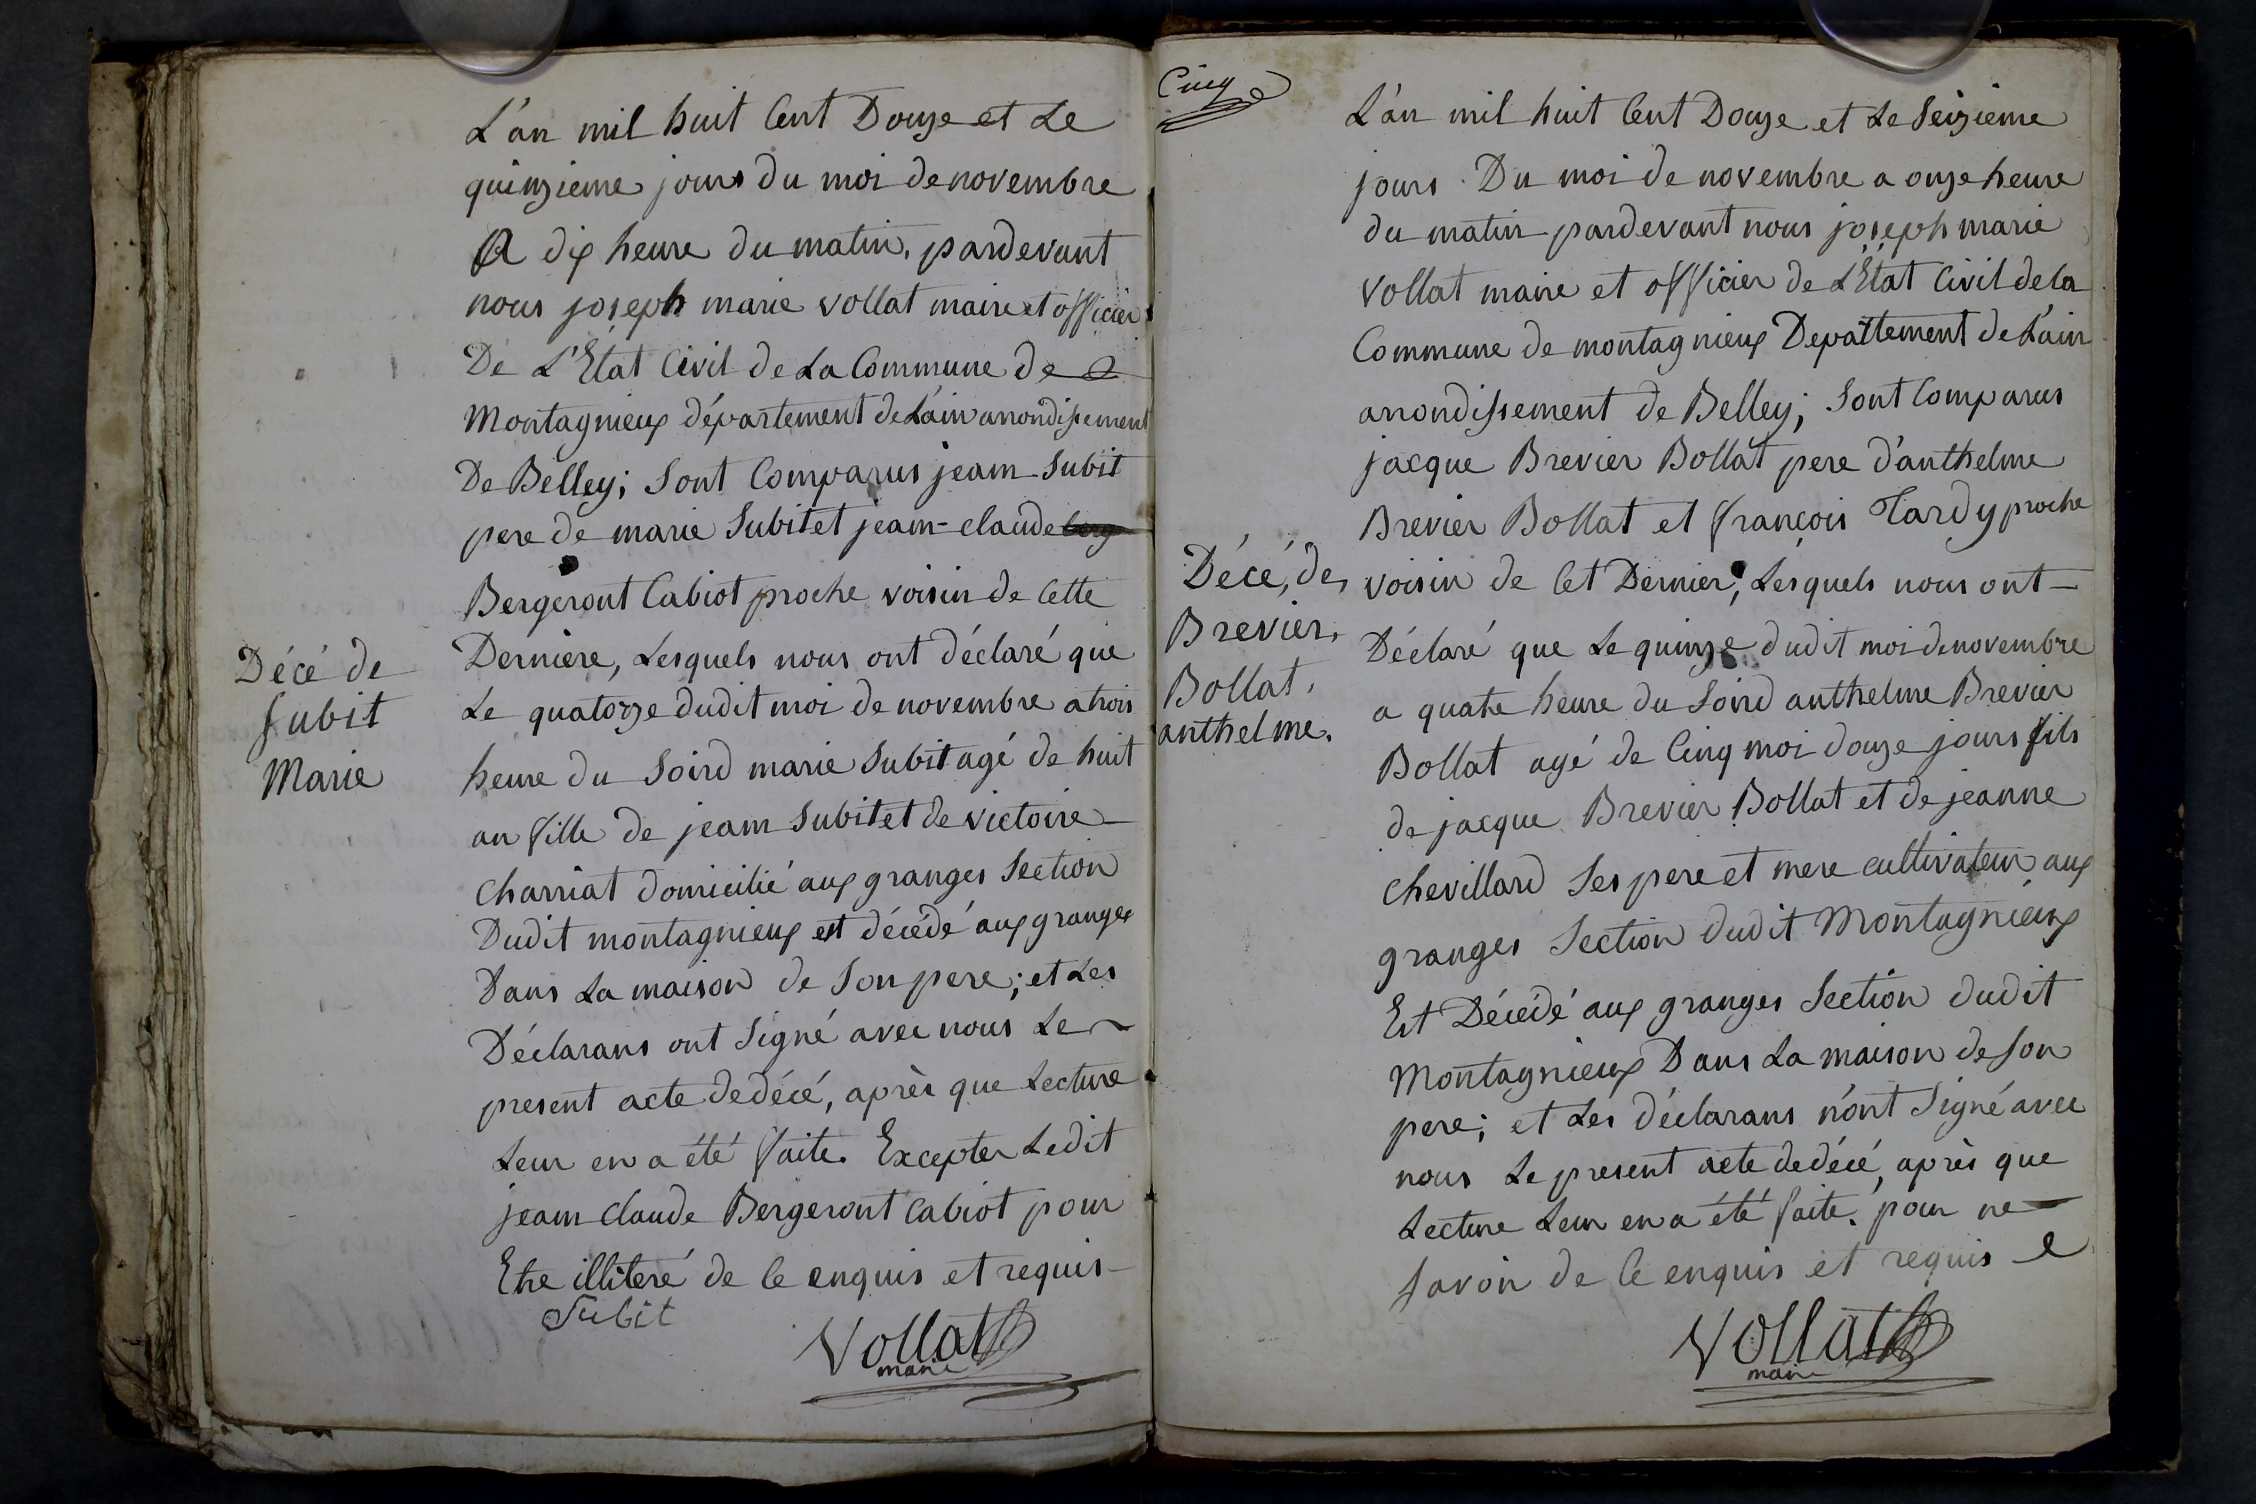 L'an mil huit Cent Douze et Le
quinzieme jours du moi de novembre
A dix heure du matin, pardevant
nous joseph marie vollat maire et officier
De L'Etat Civil de La Commune de
Montagnieux département de L'ain arrondissement
De Belley; Sont Comparus jeam Subit
pere de marie Subit et jeam-claude
Bergeront Cabiot proche voisin de Cette
Derniere, Lesquels nous ont déclaré que
Le quatorze dudit moi de novembre a trois
heure du Soird marie Subit agé de huit
an fille de jeam Subit et de victoire
Charriat domicilié aux granges Section
Dudit montagnieux est décédé aux granges
Dans La maison de Son pere; et Les
Déclarans ont Signé avec nous Le
present acte de décé, après que Lecture
Leur en a été faite. Excepter Ledit
jeam claude Bergeront Cabiot pour
Etre illiteré de Ce enquis et requis
Subit
Vollat
maire
Décé de
Subit
Marie
Cinq
L'an mil huit Cent Douze et Le Seizieme
jours Du moi de novembre a onze heure
du matin pardevant nous joseph marie
vollat maire et officier de L'Etat Civil de la
Commune de montagnieux Departtement de L'ain
arrondissement de Belley; Sont Comparus
jacque Brevier Bollat pere d'anthelme
Brevier Bollat et françois Tardy proche
voisin de Cet Dernier, Lesquels nous ont
Déclaré que Le quinze dudit moi de novembre
a quatre heure du Soird anthelme Brevier
Bollat agé de Cinq moi douze jours fils
de jacque Brevier Bollat et de jeanne
Chevillard Ses pere et mere cultivateur aux
granges Section dudit Montagnieux
Est Décédé aux granges Section dudit
Montagnieux Dans La maison de Son
pere; et Les déclarans n'ont Signé avec
nous Le present acte de décé, après que
Lecture Leur en a été faite. pour ne
Savoir de Ce enquis et requis
Vollat
maire
Décé, de,
Brevier,
Bollat,
anthelme.